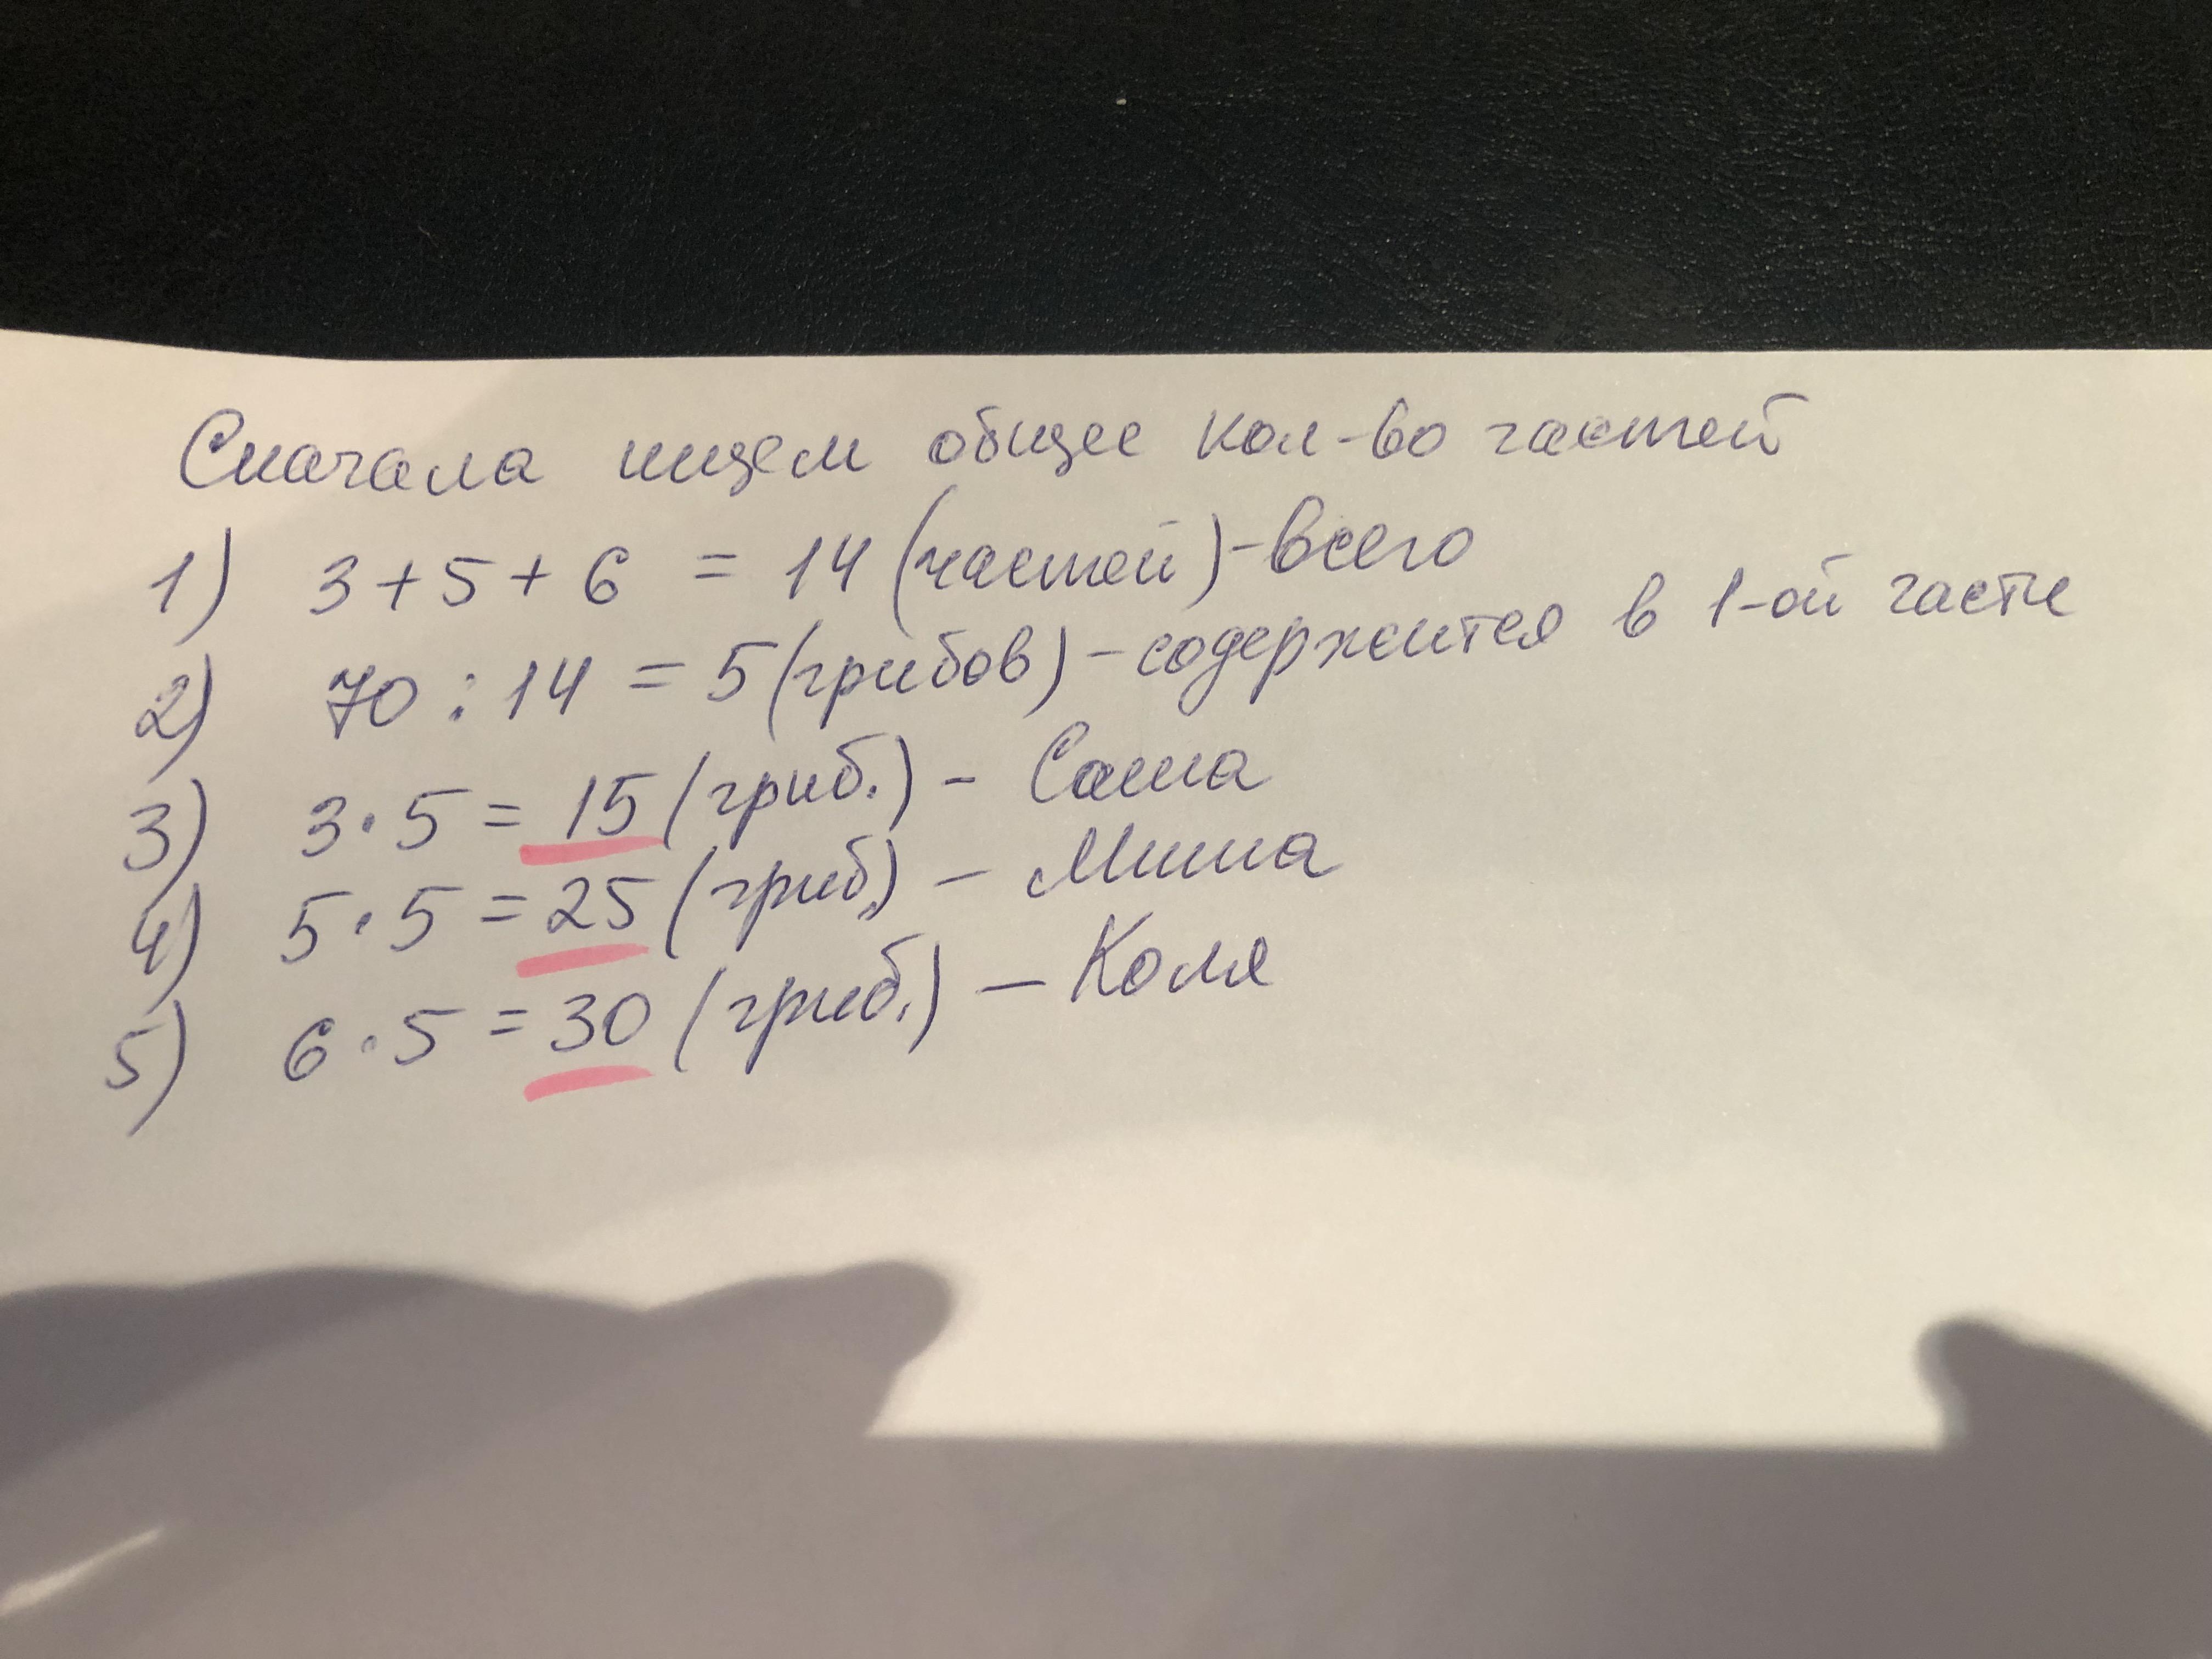 Сначала ищем общее кол-во частей
1) 3+5+6 = 14 (частей) - всего
2) 70 : 14 = 5 (грибов) - содержится в 1-ой части
3) 3·5 = 15 (гриб.) - Саша
4) 5·5 = 25 (гриб.) - Миша
5) 6·5 = 30 (гриб.) - Коля